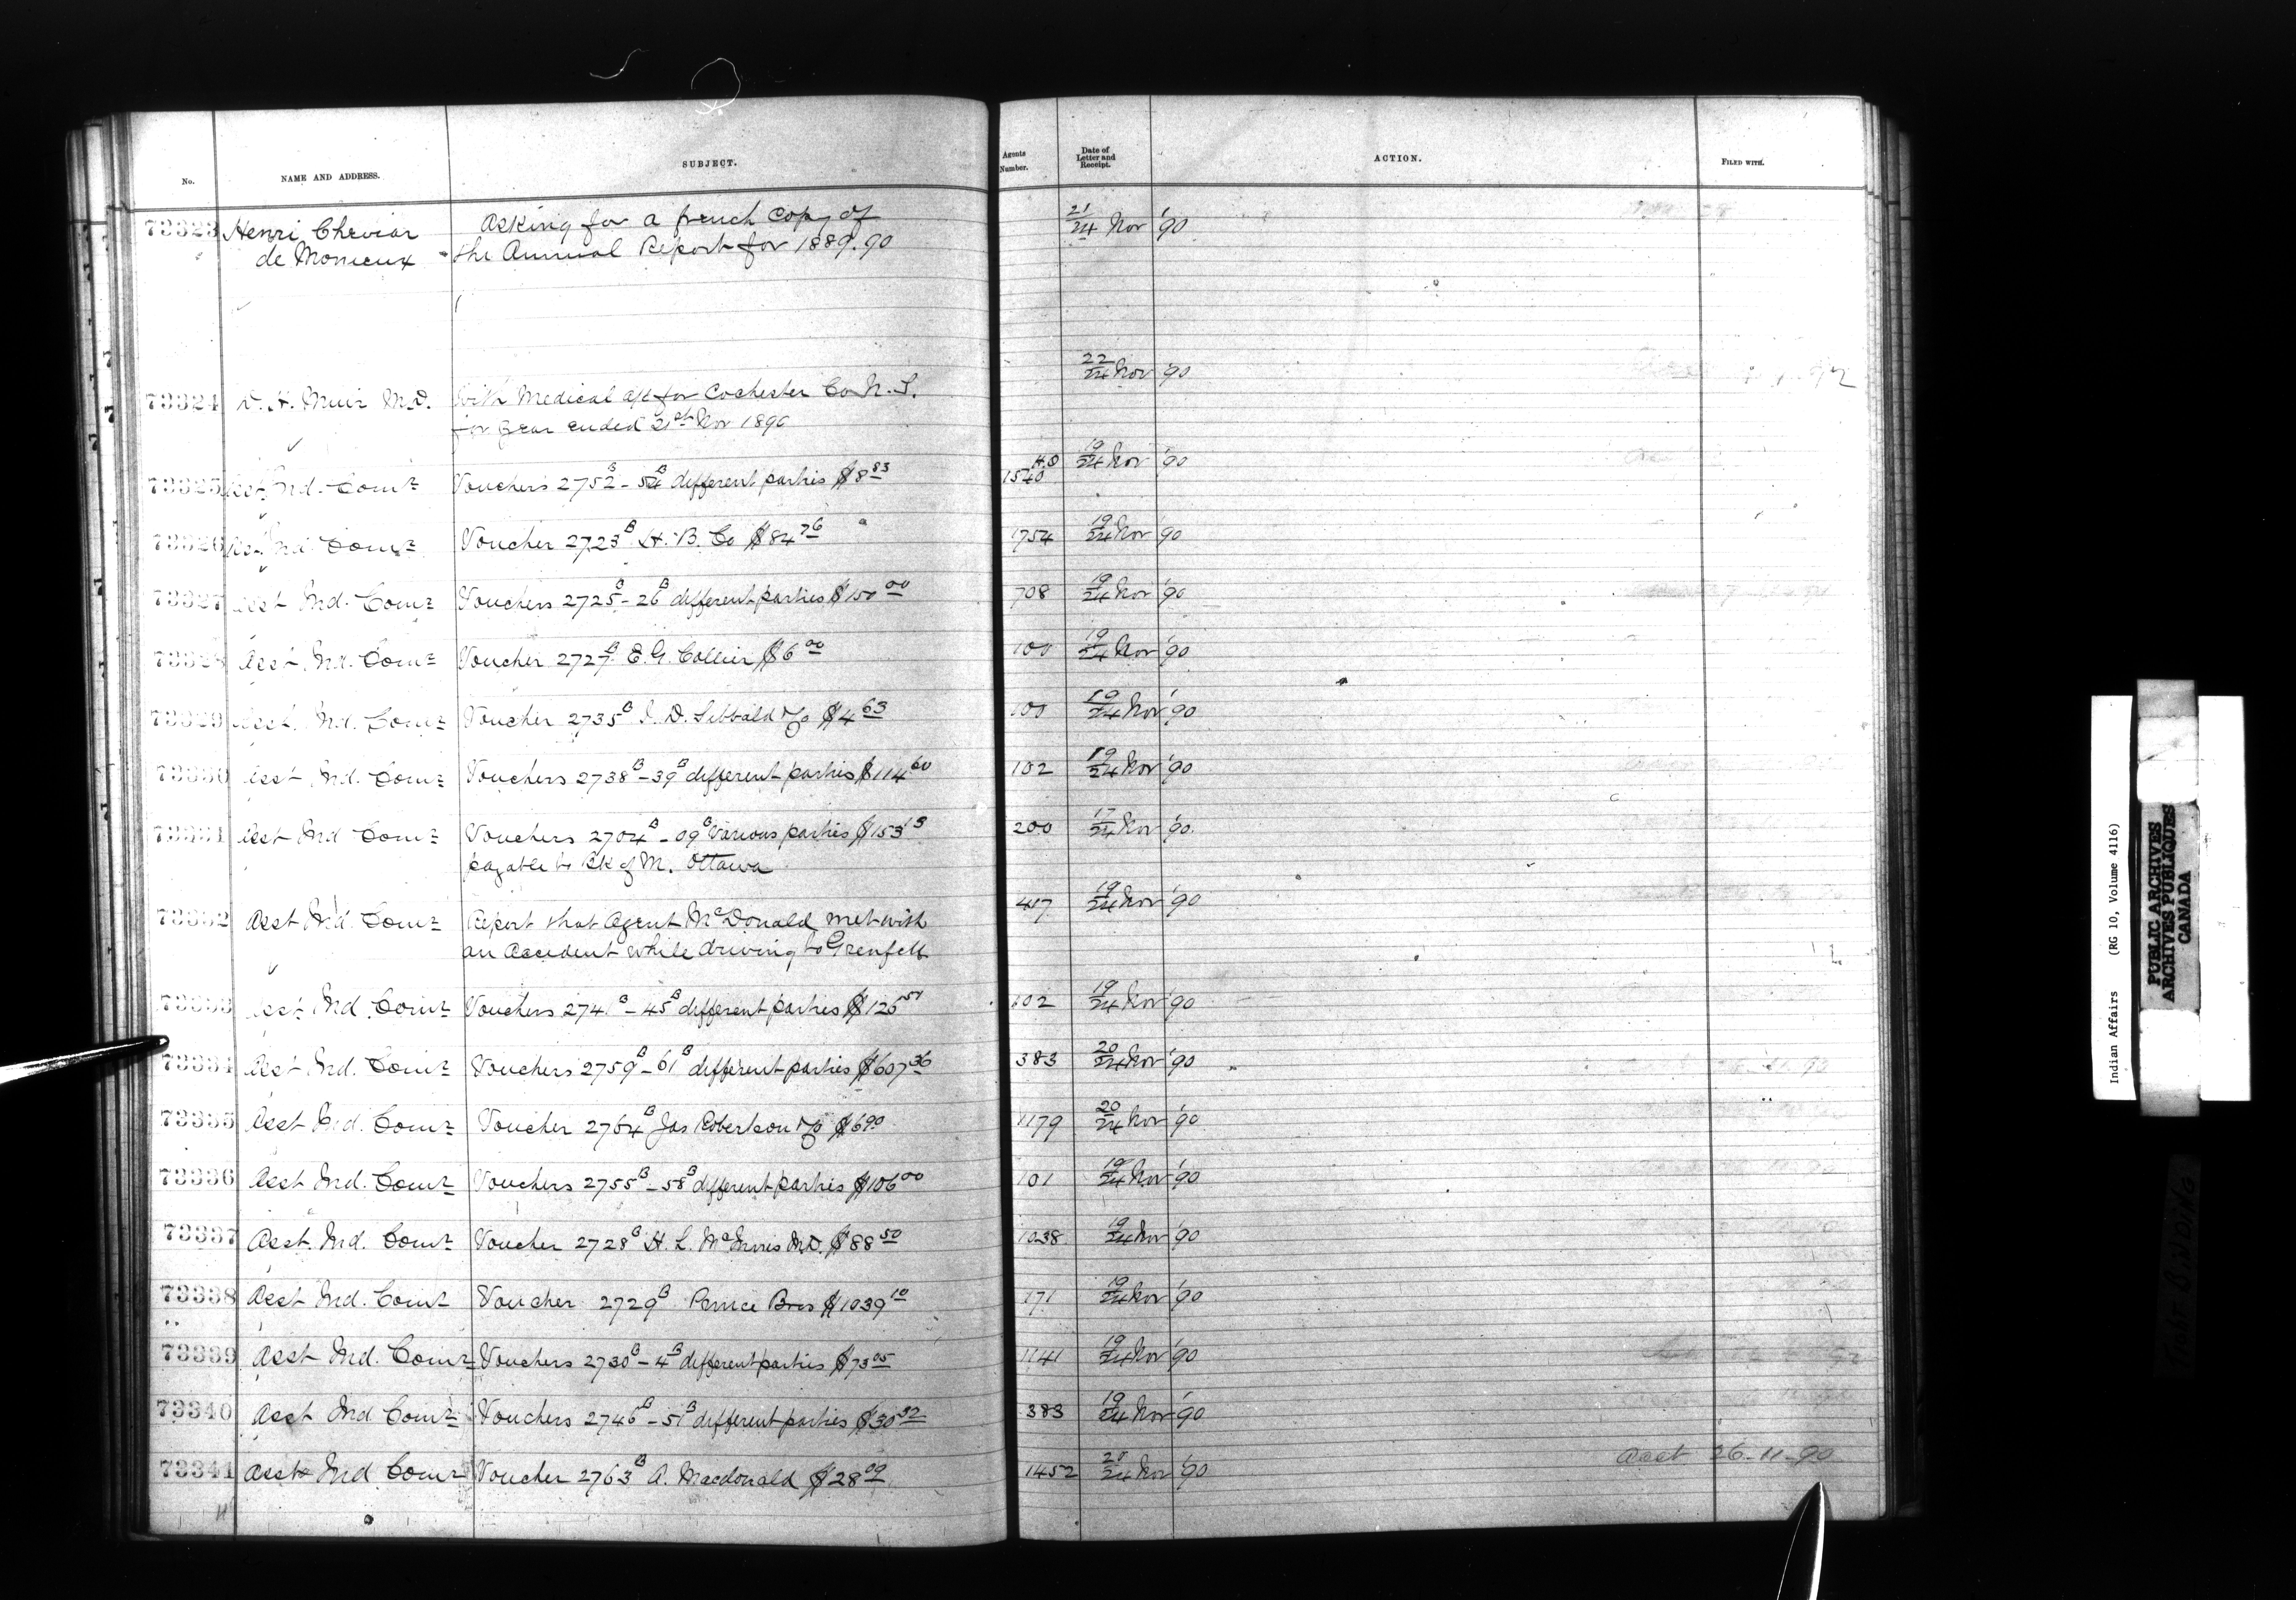 No. NAME AND ADDRESS. SUBJECT. Agents Number. Date of Letter and Receipt. ACTION. FILED WITH.
73323 Henri Cheviar Asking for a french copy of 21/24 Nov '90
de Monieux the Annual Report for 1889.90
22/24 Nov '90
73324 D. H. Muir M.D. With Medical a/c for Cochester Co N. S.
for year ended 21st Nov 1890
73325 Asst Ind. Comr Vouchers 2752B - 54B different parties $8 83 H.O 1540 19/24 Nov '90
73326 Asst Ind. Comr Voucher 2723B H. B. Co $84 76 1754 19/24 Nov '90
73327 Asst Ind. Comr Vouchers 2725B - 26B different parties $150 00 708 19/24 Nov '90
73328 Asst. Ind. Comr Voucher 2727B E. G. Collier $6 00 100 19/24 Nov '90
73329 Asst. Ind. Comr Voucher 2735B I. D. Sibbald $4 63 100 19/24 Nov '90
73330 Asst Ind. Comr Vouchers 2738B - 39B different parties $114 60 102 19/24 Nov '90
73331 Asst Ind Comr Vouchers 2704B - 09B Various parties $153 13 200 17/24 Nov '90
payable to Bk of M. Ottawa
73332 Asst Ind. Comr Report that Agent McDonald met with 417 19/24 Nov '90
an Accident while driving to Grenfell
73333 Asst Ind. Comr Vouchers 2741B - 45B different parties 102 19/24 Nov '90
73334 Asst Ind. Comr Vouchers 2759B - 61B different parties $607 36 383 20/24 Nov '90
73335 Asst Ind. Comr Voucher 2764B Jas Robertson $6 90 1179 20/24 Nov '90
73336 Asst Ind. Comr Vouchers 2755B - 58B different parties $106 00 101 19/24 Nov '90
73337 Asst. Ind. Comr Voucher 2728B H. L. McInnis M.D. $88 50 1038 19/24 Nov '90
73338 Asst Ind. Comr Voucher 2729B Bros $1039 10 171 19/24 Nov '90
73339 Asst Ind. Comr Vouchers 2730B - 4B different parties $73 05 1141 19/24 Nov '90
73340 Asst Ind Comr Vouchers 2746B - 51B different parties $30 92 383 19/24 Nov '90
73341 Asst Ind Comr Voucher 2763B A. Macdonald $28 09 1452 20/24 Nov '90 Acct 26-11-90
Indian Affairs (RG 10, Volume 4116)
PUBLIC ARCHIVES
ARCHIVES PUBLIQUES
CANADA
TIGHT BINDING